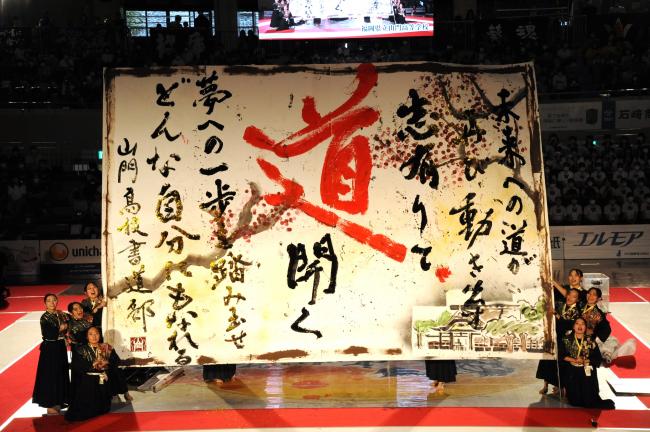 福岡県立山門高等学校
未来への道が
再び動き
志有りて
道
開く
夢への一歩を踏み出せ
どんな自分にもなれる
山門高校書道部
unicha
エルモア